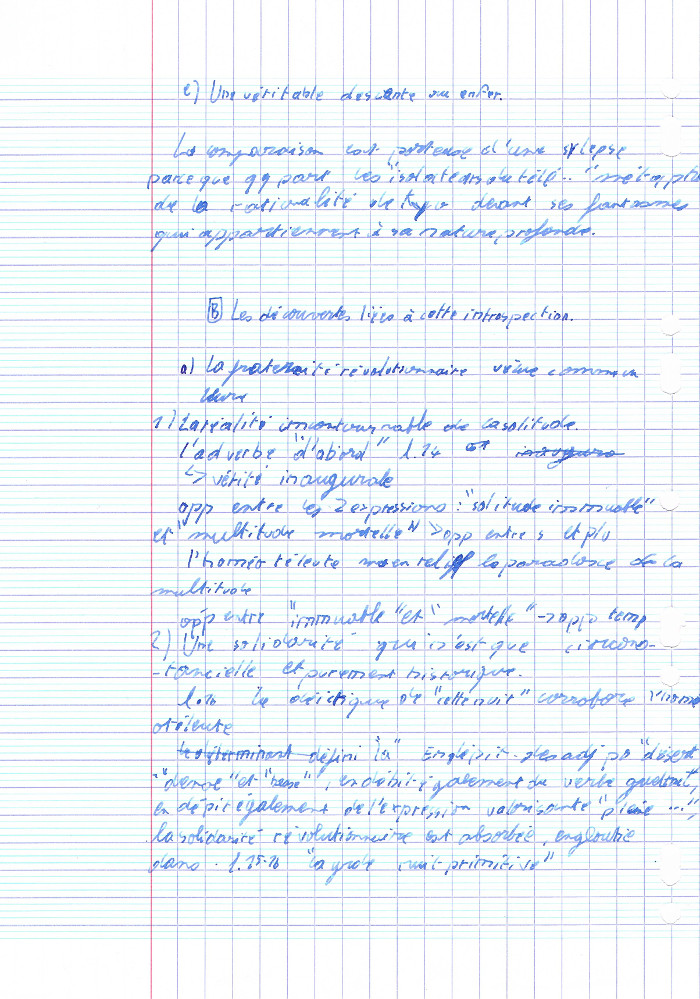 c) Une véritable descente aux enfer.
La comparaison est porteuse d'une syllepse
parce que qq part les "isolateurs de télé..." "métaph
de la rationalité de devant ses fantasmes
qui appartiennent à sa nature profonde.
B Les découvertes liées à cette introspection.
a) La fraternité révolutionnaire vécue comme un
leurre
1) La réalité incontournable de la solitude.
l'adverbe "d'abord" l.14
↳ vérité inaugurale
opp entre les 2 expressions : "solitude immuable"
et "multitude mortelle" > opp entre s et plu
l'homéotéleute met en relief le paradoxe de la
multitude
opp entre "immuable" et "mortelle" -> opp temp
2) Une solidarité qui n'est que circons-
-tancielle et purement historique.
l.16 le déictique de "cette nuit" corrobore l'homé
otéleute
le déterminant défini "la" En dépit des adj "désert"
"dense" et , en dépit également du verbe
en dépit également de l'expression valorisante "pleine ..."
la solidarité révolutionnaire est absorbée, engloutie
dans . l.15-16 "la gde nuit primitive"